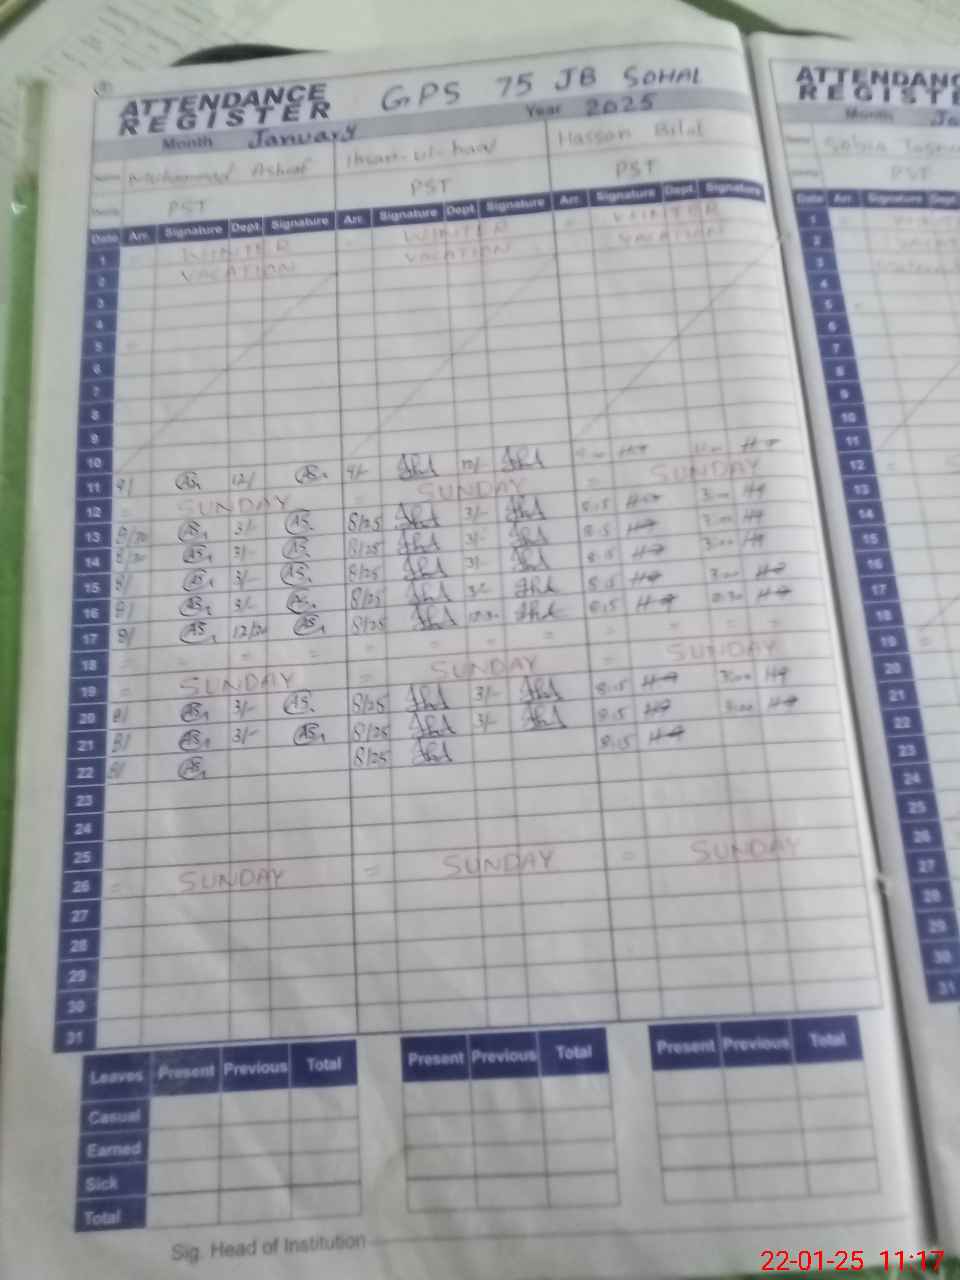 ATTENDANCE REGISTER GPS 75 JB SOHAL
Month January Year 2025
Muhammad Ashraf Ihsan-ul-haq Hassan Bilal
PST PST PST
Date Arr. Signature Dept. Signature Arr. Signature Dept. Signature Arr. Signature Dept. Signature
1 WINTER WINTER WINTER
2 VACATION VACATION VACATION
3
4
5
6
7
8
9
10
11 9/ 12/
12 = SUNDAY = SUNDAY = SUNDAY
13 8/20 3/- 8/25 3/- 8:15 3:00
14 8/20 3/- 8/25 3/- 8:15 3:00
15 8/ 3/- 8/25 3/- 8:15 3:00
16 8/ 3/- 8/25 3/- 8:15 3:00
17 8/ 8/25 8:15
18 = = = = = = = = =
19 = SUNDAY = SUNDAY = SUNDAY
20 8/ 3/- 8/25 3/- 8:15 3:00
21 8/ 3/- 8/25 3/- 8:15 3:00
22 8/ 8/25 8:15
23
24
25
26 = SUNDAY = SUNDAY = SUNDAY
27
28
29
30
31
Leaves Present Previous Total Present Previous Total Present Previous Total
Casual
Earned
Sick
Total
Sig. Head of Institution
ATTENDANC
REGISTE
Month Ja
PST
Date Arr. Signature Dept.
1
2
3
4
5
6
7
8
9
10
11
12 =
13
14
15
16
17
18
19 =
20
21
22
23
24
25
26
27
28
29
30
31
22-01-25 11:17